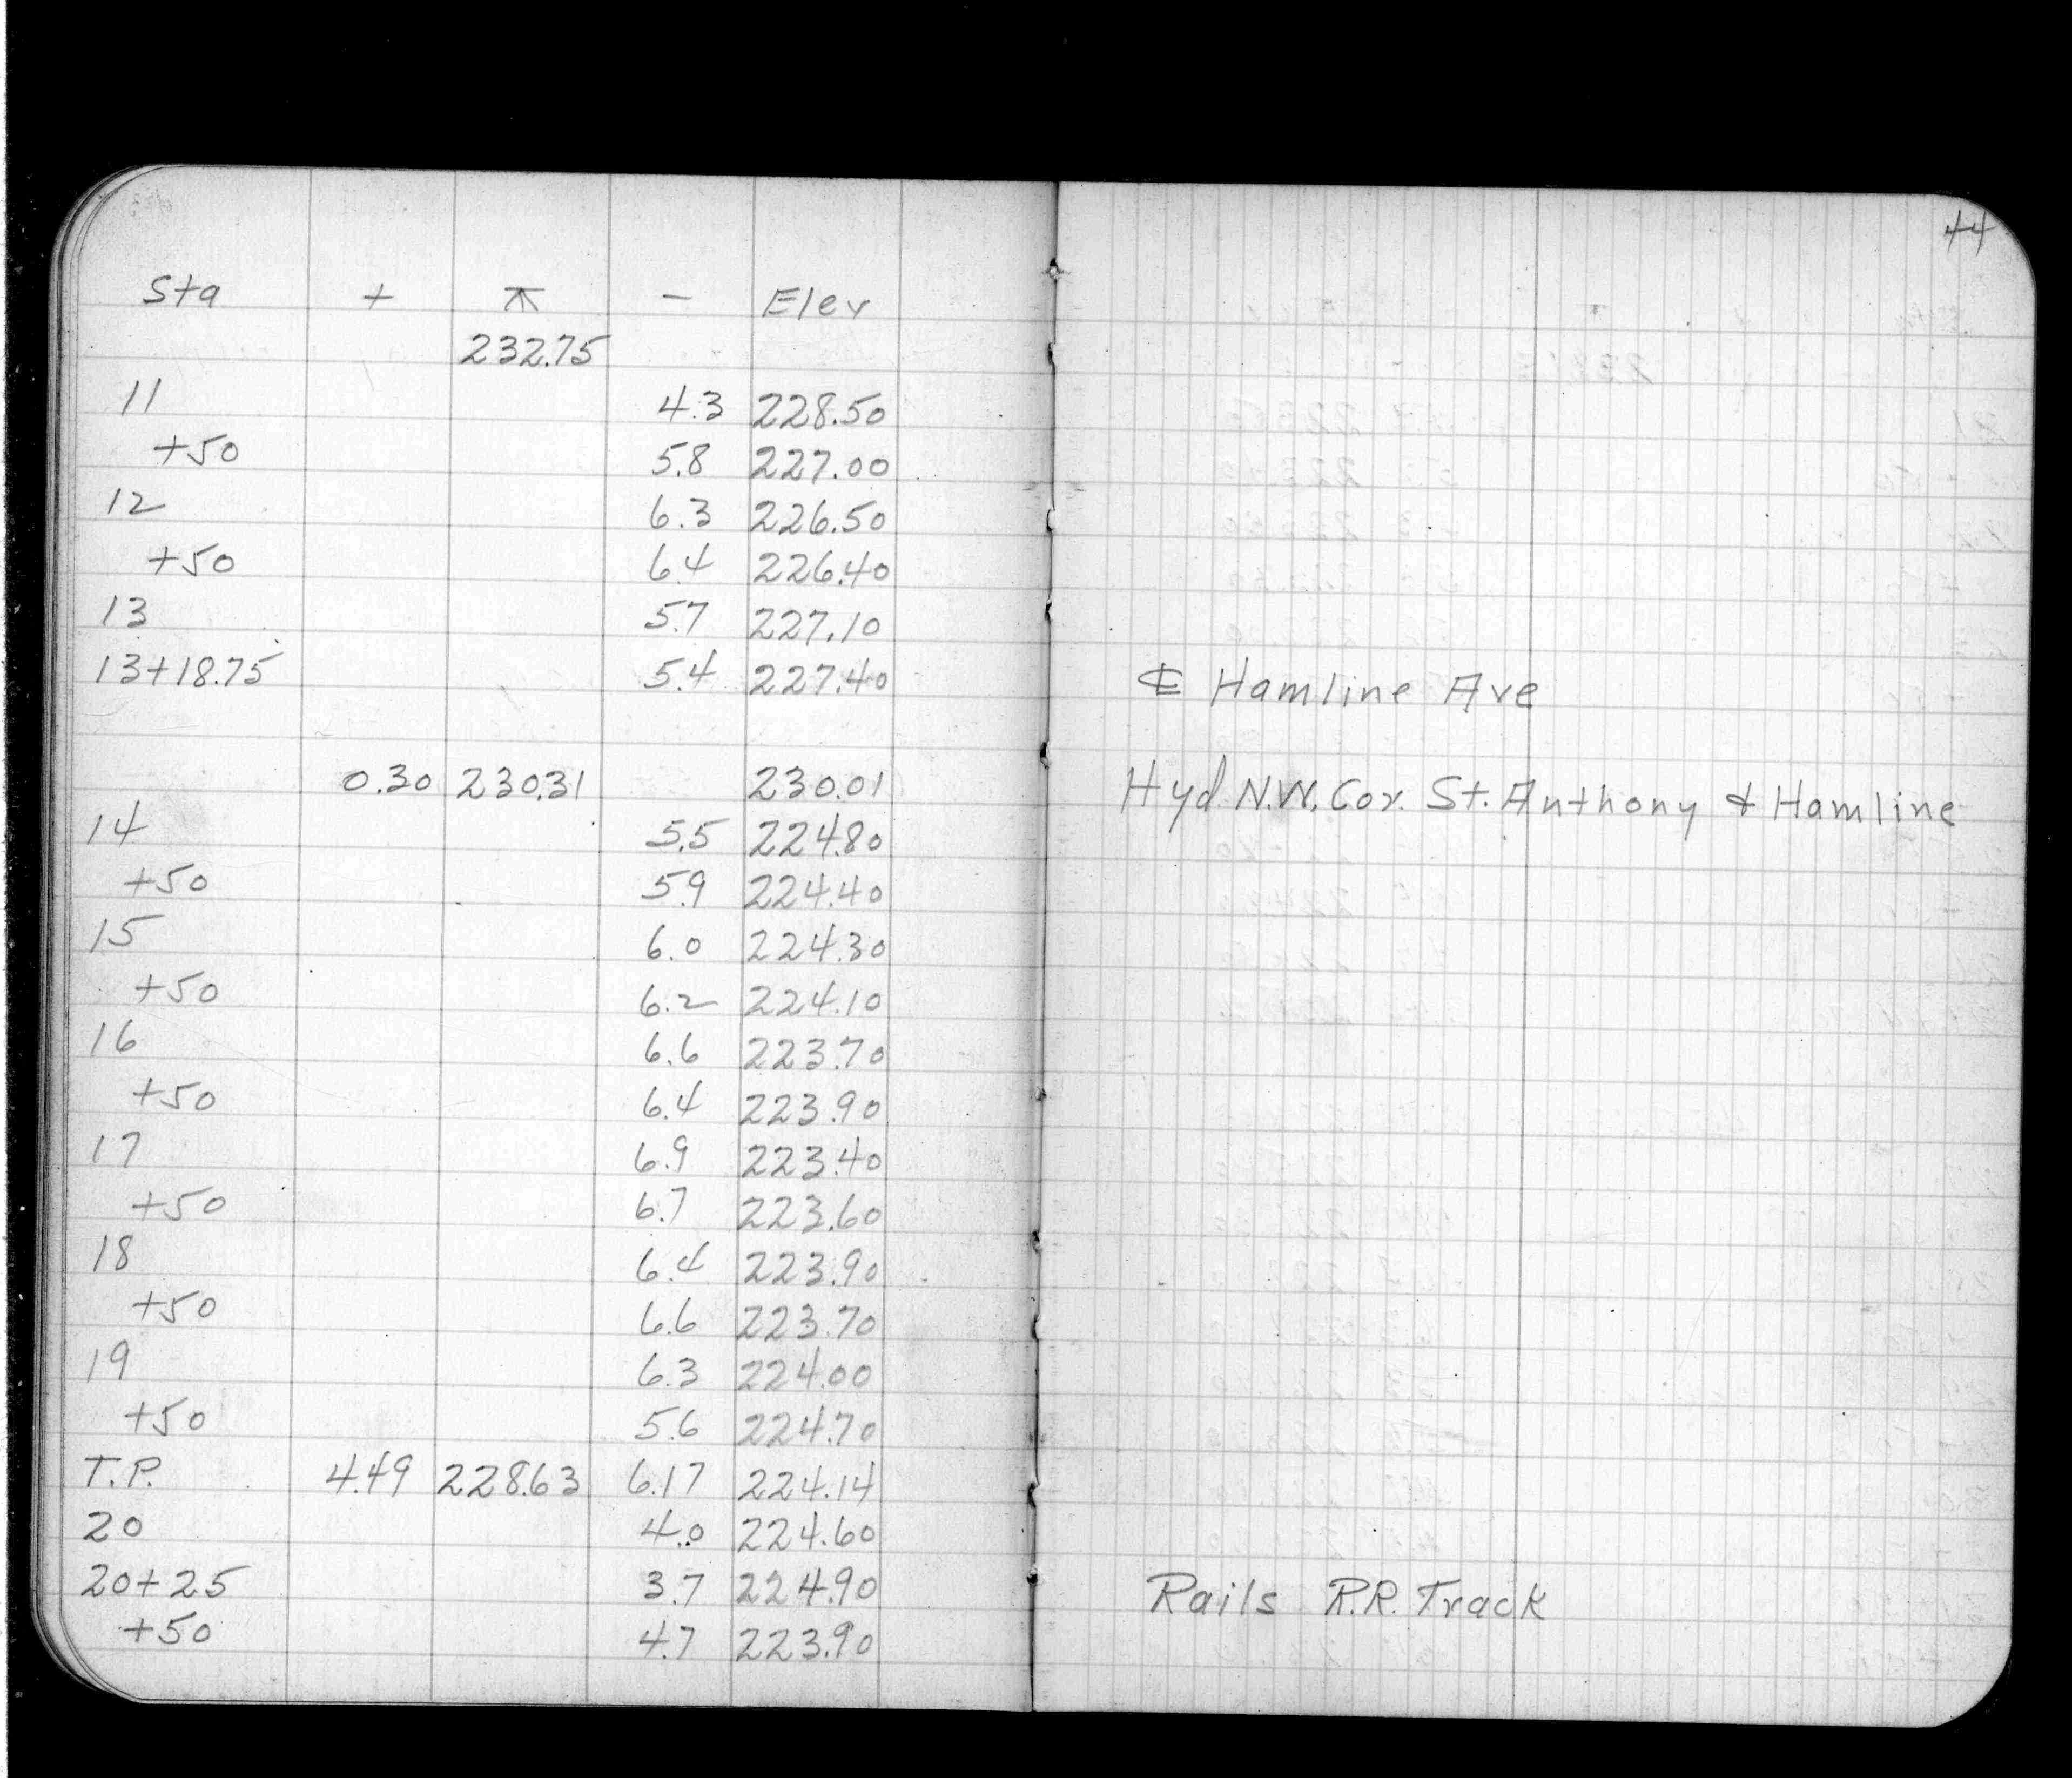 44
Sta + ⊼ - Elev
232.75
11 4.3 228.50
+50 5.8 227.00
12 6.3 226.50
+50 6.4 226.40
13 5.7 227.10
13+18.75 5.4 227.40 ℄ Hamline Ave
0.30 230.31 230.01 Hyd N.W. Cor. St. Anthony & Hamline
14 5.5 224.80
+50 5.9 224.40
15 6.0 224.30
+50 6.2 224.10
16 6.6 223.70
+50 6.4 223.90
17 6.9 223.40
+50 6.7 223.60
18 6.4 223.90
+50 6.6 223.70
19 6.3 224.00
+50 5.6 224.70
T.P. 4.49 228.63 6.17 224.14
20 4.0 224.60
20+25 3.7 224.90 Rails R.R. Track
+50 4.7 223.90